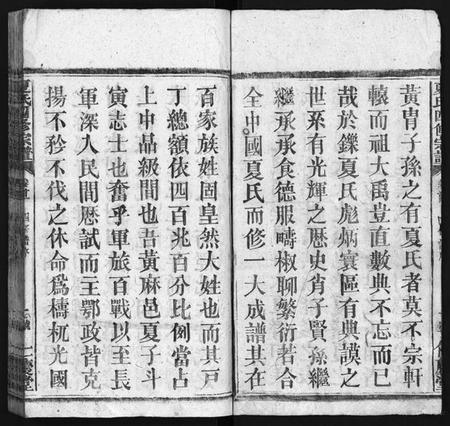 黃胄子孫之有夏氏者莫不宗軒
轅而祖大禹豈直數典不忘而已
哉於鑠夏氏彪炳寰區有典謨之
世系有光輝之歷史肖子賢孫繼
繼承承食德服疇椒聊繁衍若合
全中國夏氏而修一大成譜其在
百家族姓固皇然大姓也而其戸
丁總額依四百兆百分比例當占
上中品級間也吾黃麻邑夏子斗
寅志士也奮乎軍旅百戰以至長
軍深人民間歷試而主鄂政皆克
揚不矜不伐之休命為檮杌光國